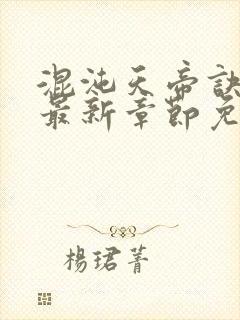 混沌天帝訣
最新章節免
楊珺菁